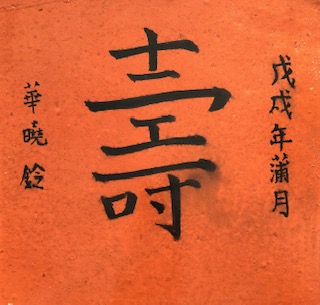 戊戌年蒲月
壽
華曉鈴